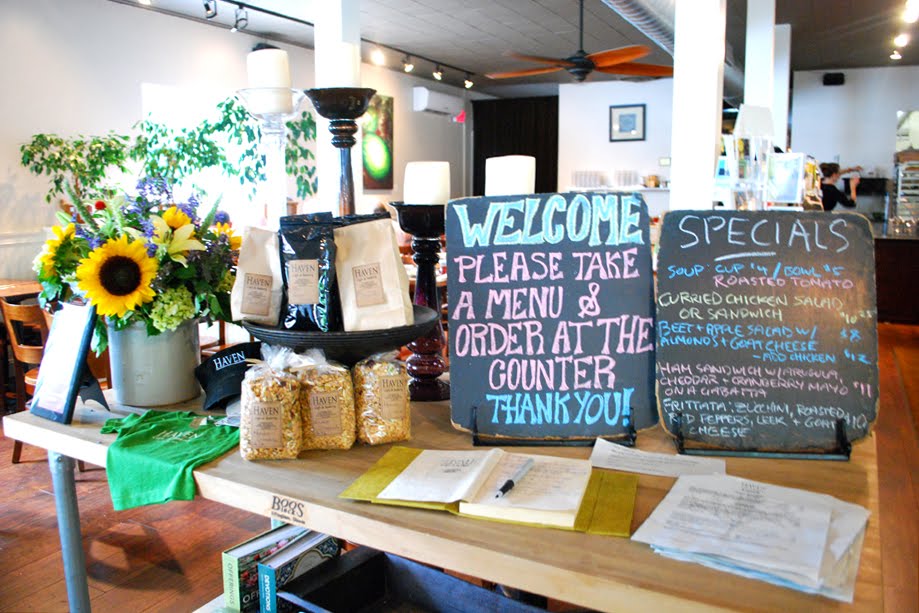 WELCOME
PLEASE TAKE
A MENU &
ORDER AT THE
COUNTER
THANK YOU!
SPECIALS
SOUP CUP $4/BOWL $5
ROASTED TOMATO
CURRIED CHICKEN SALAD
OR SANDWICH
BEET + APPLE SALAD W/ $8
ALMONDS + GOAT CHEESE
- ADD CHICKEN $12
HAM SANDWICH W/ ARUGULA,
CHEDDAR + CRANBERRY MAYO $11
ON A CIABATTA
FRITTATA: ZUCCHINI, ROASTED $10
RED PEPPERS, LEEK + GOAT
CHEESE
HAVEN
HAVEN
HAVEN
HAVEN
HAVEN
HAVEN
HAVEN
HAVEN
HAVEN
BOOS
BLOCK
OFFERINGS
DEVOTIONS